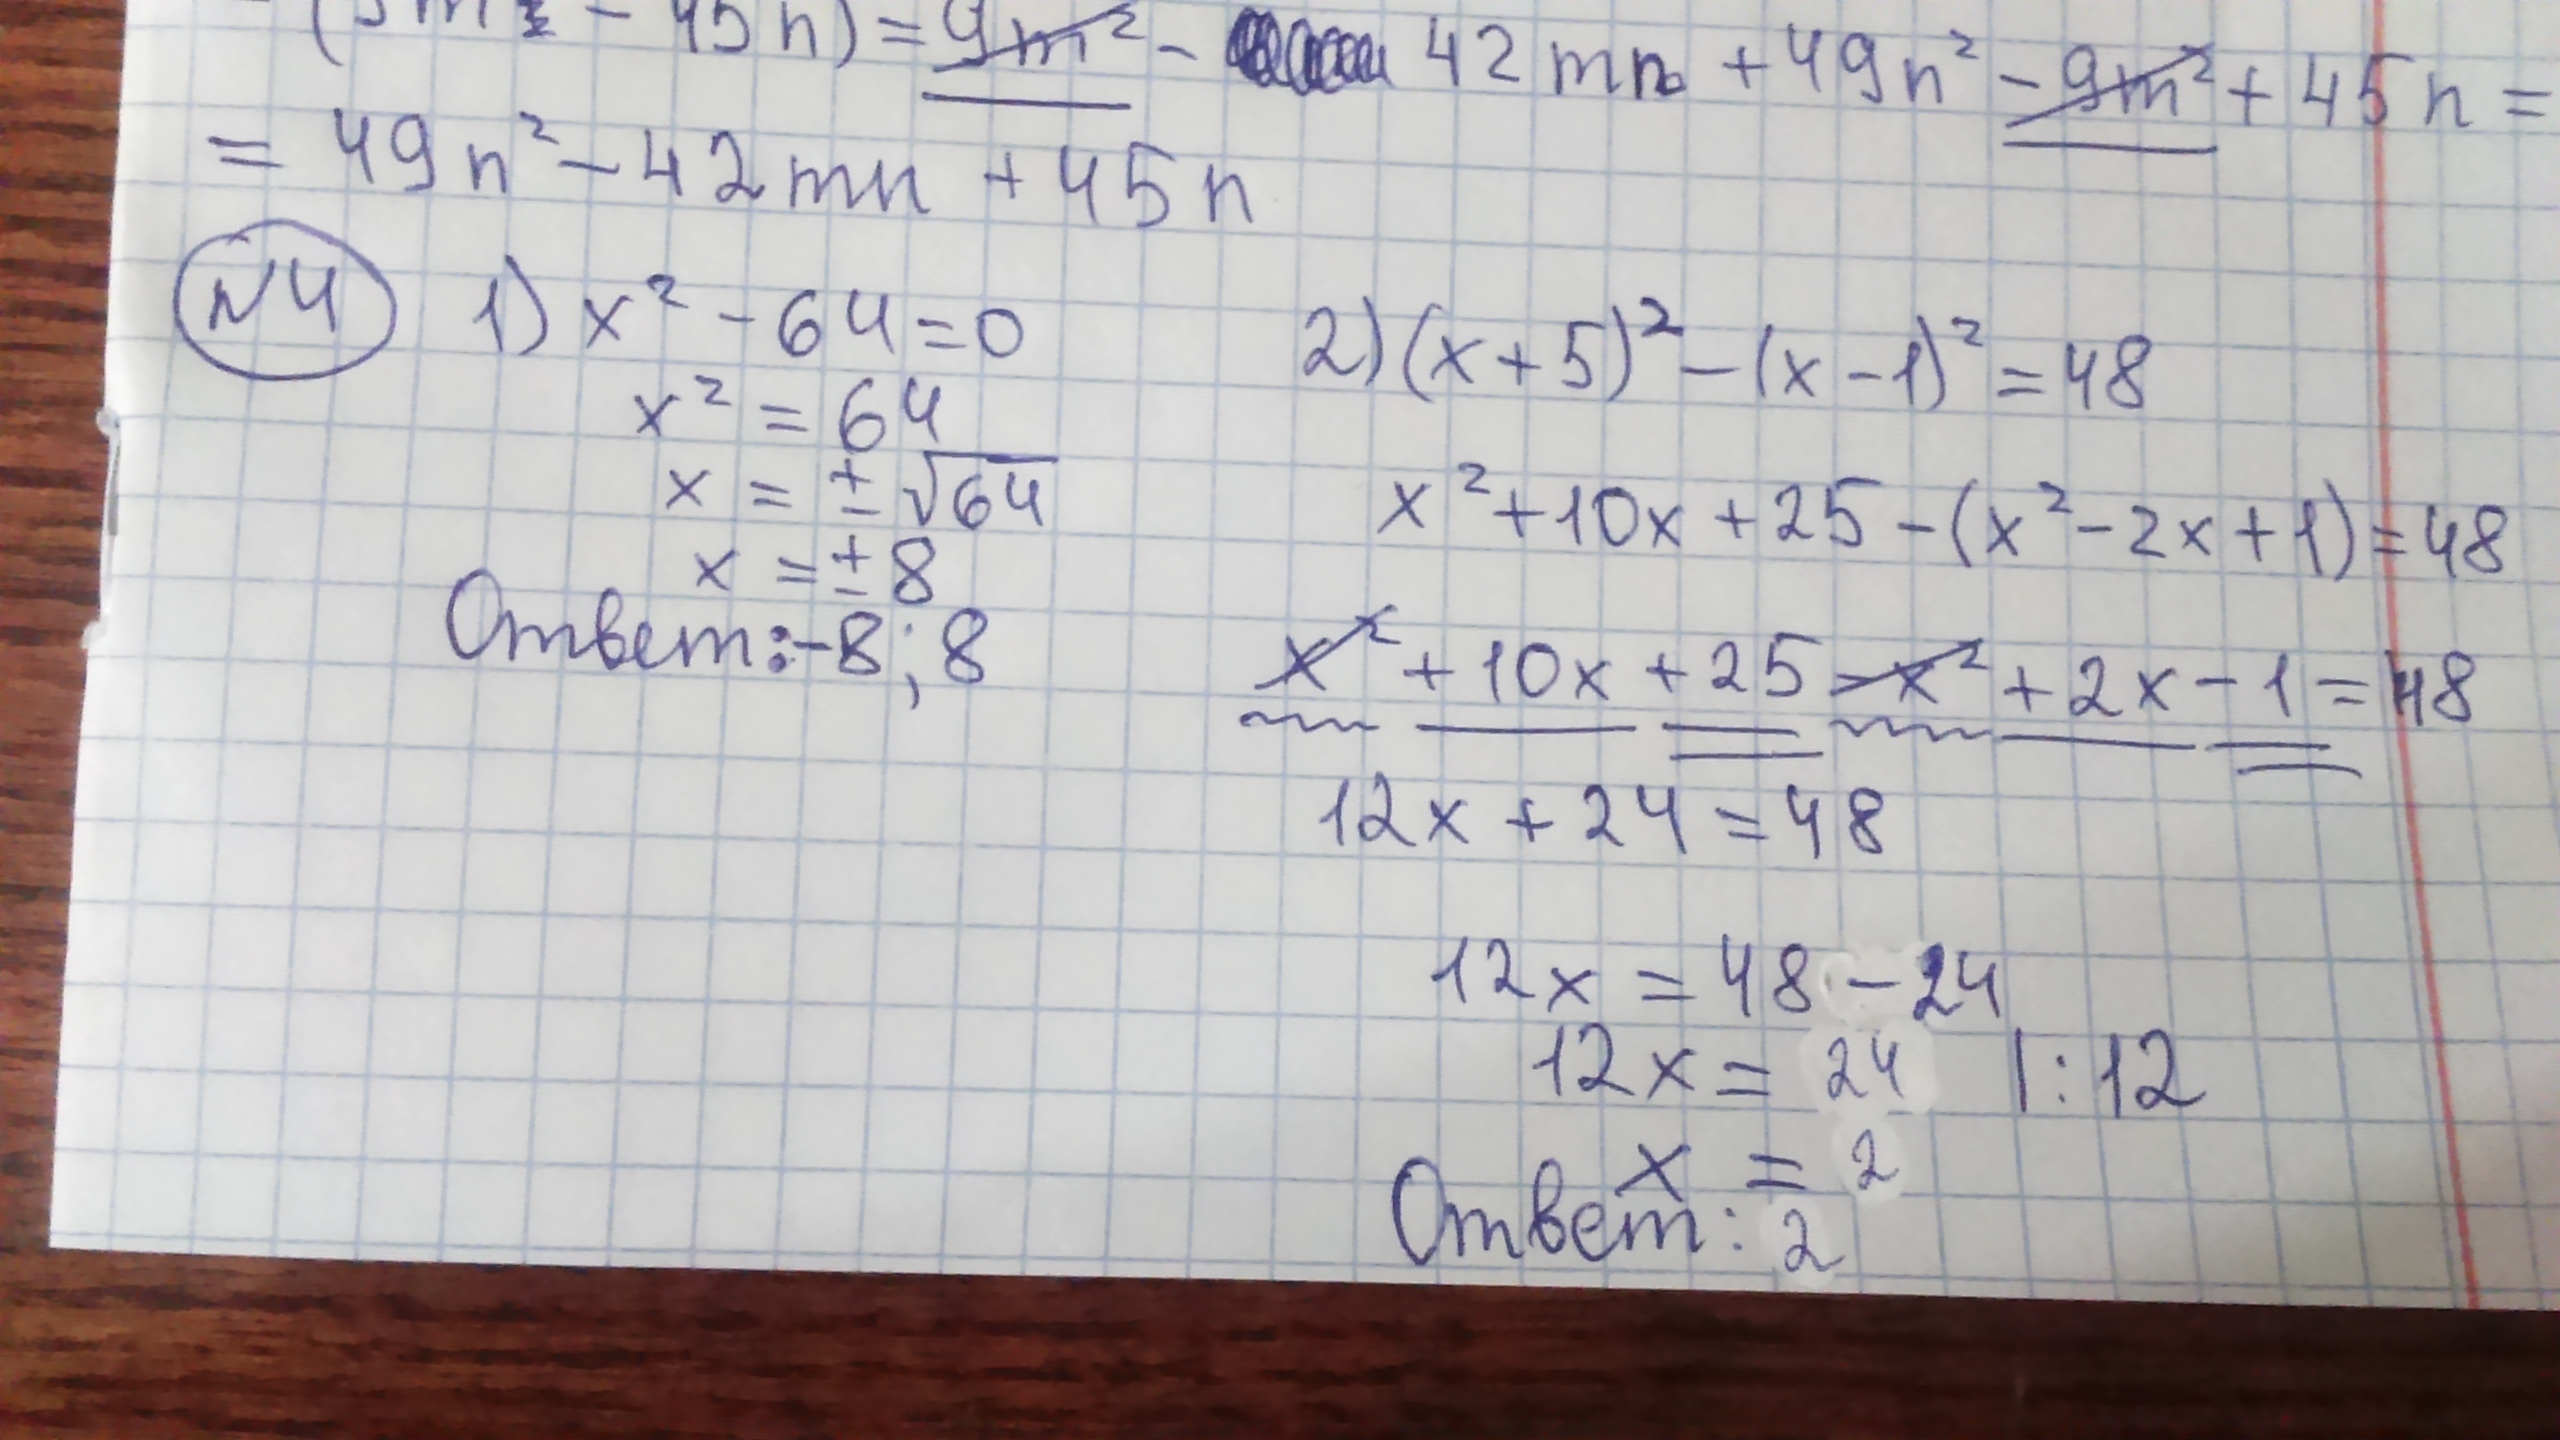 - (9m² - 45n) = 9m² - 42mn + 49n² - 9m² + 45n =
= 49n² - 42mn + 45n
№4
1) x² - 64 = 0
x² = 64
x = ± √64
x = ± 8
Ответ: -8; 8
2) (x + 5)² - (x - 1)² = 48
x² + 10x + 25 - (x² - 2x + 1) = 48
x² + 10x + 25 - x² + 2x - 1 = 48
12x + 24 = 48
12x = 48 - 24
12x = 24 |: 12
x = 2
Ответ: 2